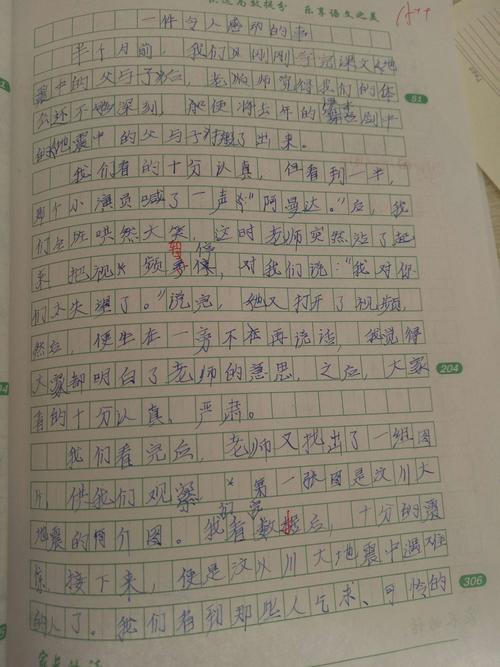 乐享语文之美
一件令人感动的事
半个月前，我们班刚刚学完课文《地
震中的父与子》后，老师觉得我们的体
会还不够深刻，便将去年的
《地震中的父与子》找了出来。
我们看的十分认真，但看到一半，
那个小演员喊了一声“阿曼达。”后，我
们全班哄然大笑，这时老师突然站了起
来，把视频暂停，对我们说：“我对你
们太失望了。”说完，她又打开了视频，
然后，便坐在一旁不在再说话，我觉得
大家都明白了老师的意思，之后，大家
看的十分认真、严肃。
我们看完后，老师又找出了一组图
片，供我们观察，第一张图是汶川大
地震的简介图。我们看完数据后，十分的震
惊，接下来，便是汶川大地震中遇难
的人了。我们看到那些人乞求、可怜的
51
204
306